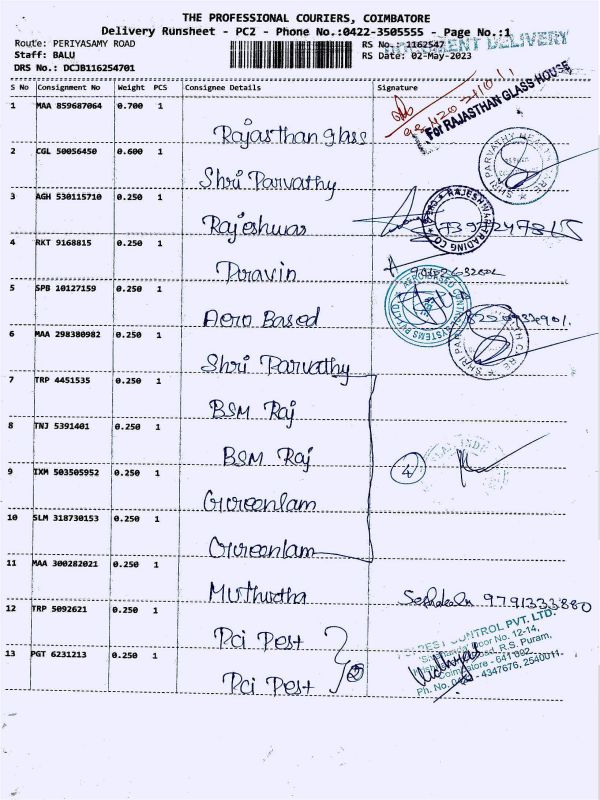 THE PROFESSIONAL COURIERS, COIMBATORE
Delivery Runsheet - PC2 - Phone No.:0422-3505555 - Page No.:1
Route: PERIYASAMY ROAD
RS No.: 1162547
DOCUMENT DELIVERY
Staff: BALU
RS Date: 02-May-2023
DRS No.: DCJB116254701
S No Consignment No Weight PCS Consignee Details Signature
For RAJASTHAN GLASS HOUSE
1 MAA 859687064 0.700 1 Rajasthan glass
SHRI PARVATHY HEALTH CARE
2 CGL 50056450 0.600 1 Shri Parvathy
3 AGH 530115710 0.250 1 Rajeshwar
RAJESHWARI TRADING CO.
4 RKT 9168815 0.250 1 Piravin
5 SPB 10127159 0.250 1 Aero Based
AERO BASED CONTROL SYSTEMS PVT LTD
6 MAA 298380982 0.250 1 Shri Parvathy
SHRI PARVATHY HEALTH CARE
7 TRP 4451535 0.250 1 BSM Raj
8 TNJ 5391401 0.250 1 BSM Raj
4
9 IXM 503505952 0.250 1 Greenlam
10 SLM 318730153 0.250 1 Greenlam
11 MAA 300282021 0.250 1 Muthutha
9791333880
12 TRP 5092621 0.250 1 Pci Pest
PEST CONTROL PVT. LTD.
Door No. 12-14,
Road, R.S. Puram,
Coimbatore - 641 002.
Ph. No. 0422 - 4347676, 2540011.
13 PGT 6231213 0.250 1 Pci Pest
2